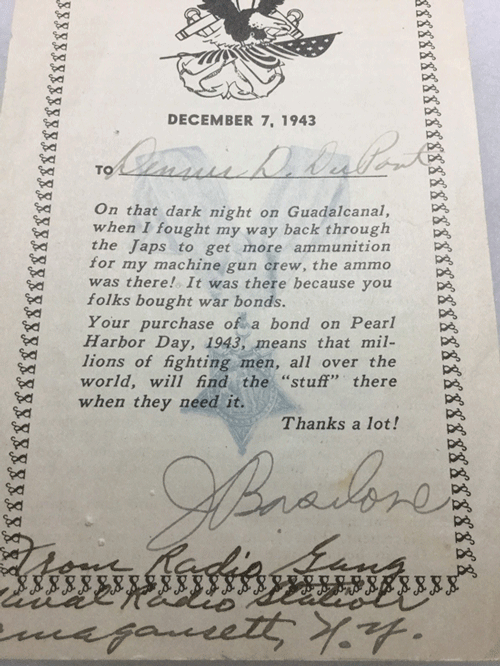 DECEMBER 7, 1943
TO Dennis D. DuPont
On that dark night on Guadalcanal,
when I fought my way back through
the Japs to get more ammunition
for my machine gun crew, the ammo
was there! It was there because you
folks bought war bonds.
Your purchase of a bond on Pearl
Harbor Day, 1943, means that mil-
lions of fighting men, all over the
world, will find the "stuff" there
when they need it.
Thanks a lot!
J Basilone
From Radio Gang
Naval Radio Station
Amagansett, N.Y.